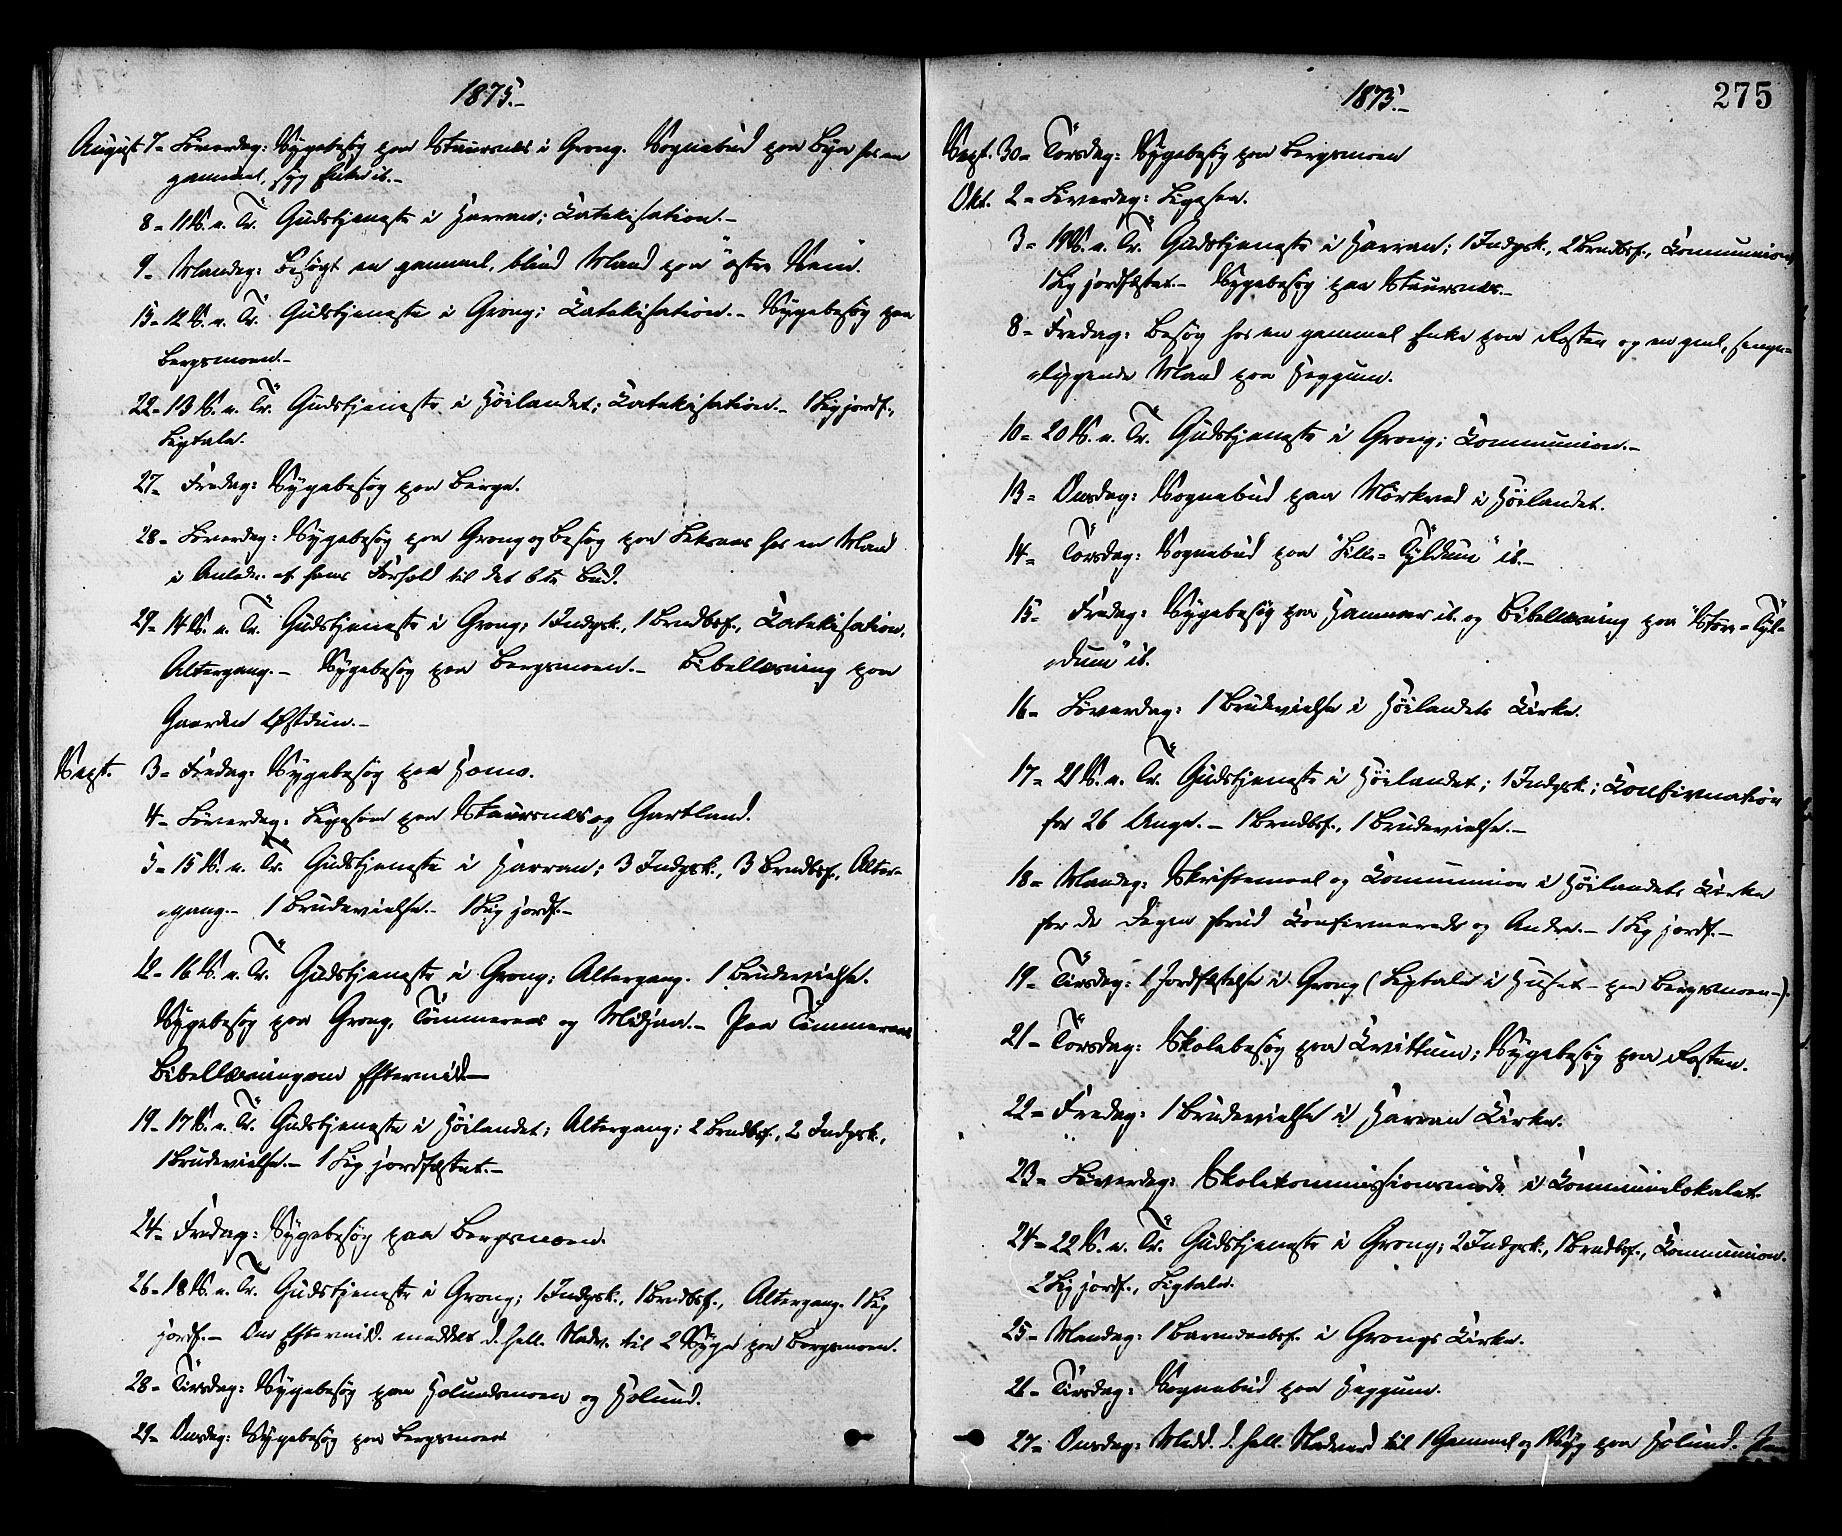 1875.-
August 7- Løverdag: Sygebesøg paa Staursnes i Grong. Sognebud paa Bya hos en
gammel, syg Enke ib.-
8- 11 S. e. Tr. Gudstjeneste i Harran; Catekisation.-
9- Mandag: Besøgt en gammel, blind Mand paa "østre Vein".
15- 12 S. e. Tr. Gudstjeneste i Grong; Catekisation.- Sygebesøg paa
Bergsmoen.-
22- 13 S. e. Tr. Gudstjeneste i Höilandet; Catekisation.- 1 Lig jordf.,
Ligtale.
27- Fredag: Sygebesøg paa Berge.
28- Løverdag: Sygebesøg paa Grong og Besøg paa Leksaas hos en Mand
i Anledn. af hans Forhold til det 6te Bud.
29- 14 S. e. Tr. Gudstjeneste i Grong; 1 Indgsk., 1 Brndbsf., Catekisation,
Altergang.- Sygebesøg paa Bergsmoen.- Bibellæsning paa
Gaarden Østduun.-
Sept. 3- Fredag: Sygebesøg paa Homo.
4- Løverdag: Ligesom paa Staursnes og Gartland.
5- 15 S. e. Tr. Gudstjeneste i Harran; 3 Indgsk., 3 Brndbsf., Alter-
gang.- 1 Brudevielse.- 1 Lig jordf.-
12- 16 S. e. Tr. Gudstjeneste i Grong; Altergang. 1 Brudevielse.
Sygebesøg paa Grong, Tömmeraas og Midjan.- Paa Tömmeraas
Bibellæsning om Eftermid.-
19- 17 S. e. Tr. Gudstjeneste i Höilandet; Altergang; 2 Brndbsf., 2 Indgsk.,
1 Brudevielse.- 1 Lig jordfæstet.-
24- Fredag: Sygebesøg paa Bergsmoen.
26- 18 S. e. Tr. Gudstjeneste i Grong; 1 Indgsk., 1 Brndbsf., Altergang. 1 Lig
jordf.- Om Eftermidd. meddelt d. hell. Nadv. til 2 Syge paa Bergsmoen.
28- Tirsdag: Sygebesøg paa Holundsmoen og Holund.
29- Onsdag: Sygebesøg paa Bergsmoen
1875.- 275
Sept. 30- Törsdag: Sygebesøg paa Bergsmoen
Okt. 2- Löverdag: Ligesom.
3- 19 S. e. Tr. Gudstjeneste i Harran; 1 Indgsk., 2 Brndbsf., Communion,
1 Lig jordfæstet.- Sygebesøg paa Staursnes.-
8- Fredag: Besøg hos en gammel Enke paa Rosten og en gml, senge-
liggende Mand paa Heggum.
10- 20 S. e. Tr. Gudstjeneste i Grong; Communion.-
13- Onsdag: Sognebud paa Mörkved i Höilandet.
14- Törsdag: Sognebud paa "Lille-Tyldum" ib.-
15- Fredag: Sygebesøg paa Hammer ib. og Bibellæsning paa "Store-Tyl-
dum" ib.
16- Löverdag: 1 Brudevielse i Höilandets Kirke.
17- 21 S. e. Tr. Gudstjeneste i Höilandet; 1 Indgsk.; Confirmation
for 26 Unge.- 1 Brndbsf., 1 Brudevielse.-
18- Mandag: Skriftemaal og Communion i Höilandets Kirke
for de Dagen forud Confirmerede og Andre.- 1 Lig jordf.-
19- Tirsdag: 1 Jordfæstelse i Grong (Ligtale i Huset - paa Bergsmoen-).
21- Törsdag: Skolebesøg paa Kvittum; Sygebesøg paa Rosten.
22- Fredag: 1 Brudevielse i Harran Kirke.
23- Löverdag: Skolekommissionsmöde i Communelokalet.
24- 22 S. e. Tr. Gudstjeneste i Grong; 2 Indgsk., 1 Brndbsf., Communion.
2 Lig jordf., Ligtale.
25- Mandag: 1 Barnedaabsf. i Grongs Kirke.
26- Tirsdag: Sognebud paa Heggum.
27- Onsdag: Medd. d. hell. Nadverd til 1 Gammel og 1 Syg paa Holund. Paa